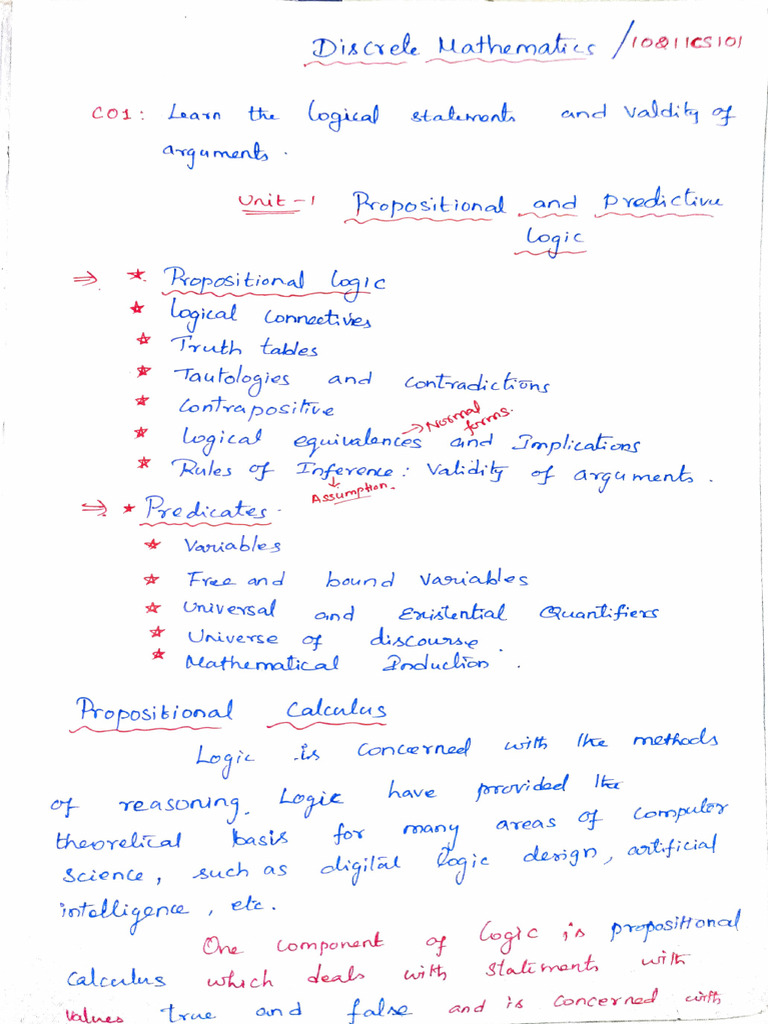 Discrete Mathematics / 10211CS101
CO1: Learn the logical statements and Valdity of
arguments.
Unit-1 Propositional and Predictive
Logic
⇒ * Propositional Logic
* Logical connectives
* Truth tables
* Tautologies and contradictions
* Contrapositive
→ Normal forms.
* Logical equivalences and Implications
* Rules of Inference: Validity of arguments.
↓
Assumption.
⇒ * Predicates.
* Variables
* Free and bound variables
* Universal and Existential Quantifiers
* Universe of discourse.
* Mathematical Induction.
Propositional Calculus
Logic is concerned with the methods
of reasoning. Logic have provided the
theorelical basis for many areas of computer
science, such as digital logic design, artificial
intelligence, etc.
One component of logic is propositional
calculus which deals with statements with
values true and false and is concerned with